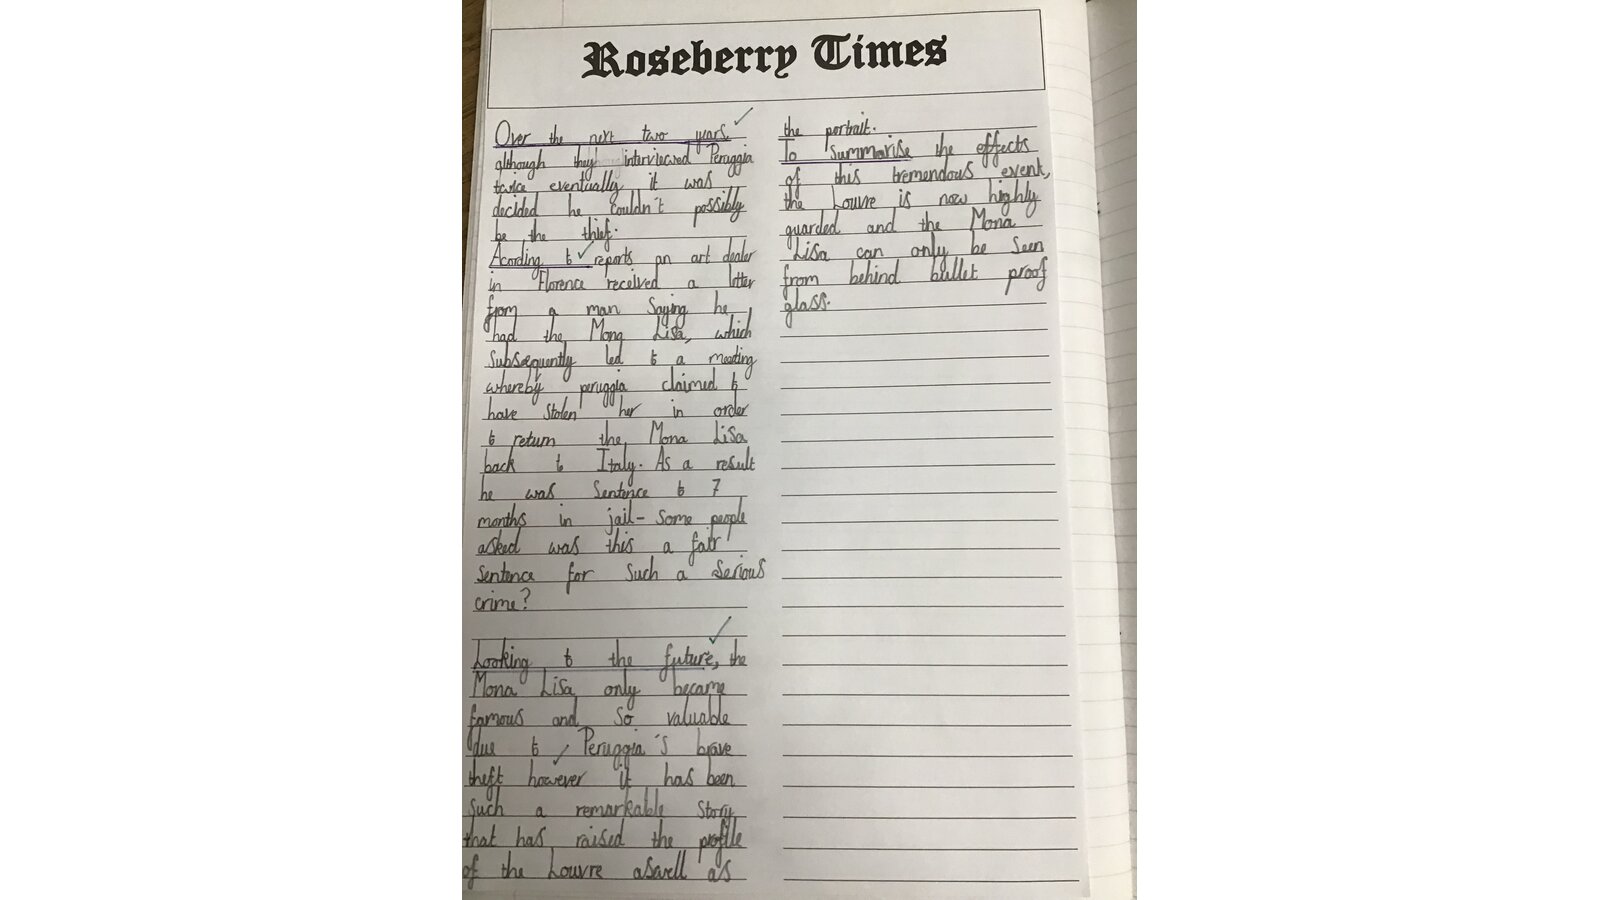 Roseberry Times
Over the next two years,
although they interviewed Peruggia
twice eventually it was
decided he couldn't possibly
be the thief.
Acording to reports an art dealer
in Florence received a letter
from a man Saying he
had the Mona Lisa, which
Subsequently led to a meeting
whereby peruggia claimed to
have Stolen her in order
to return the Mona Lisa
back to Italy. As a result
he was Sentence to 7
months in jail- Some people
asked was this a fair
Sentence for Such a Serious
crime?
Looking to the future, the
Mona Lisa only became
famous and so valuable
due to Peruggia's brave
theft however it has been
Such a remarkable Story
that has raised the profile
of the Louvre aswell as
the portrait.
To Summarise the effects
of this tremendous event,
the Louvre is now highly
guarded and the Mona
Lisa can only be Seen
from behind bullet proof
glass.